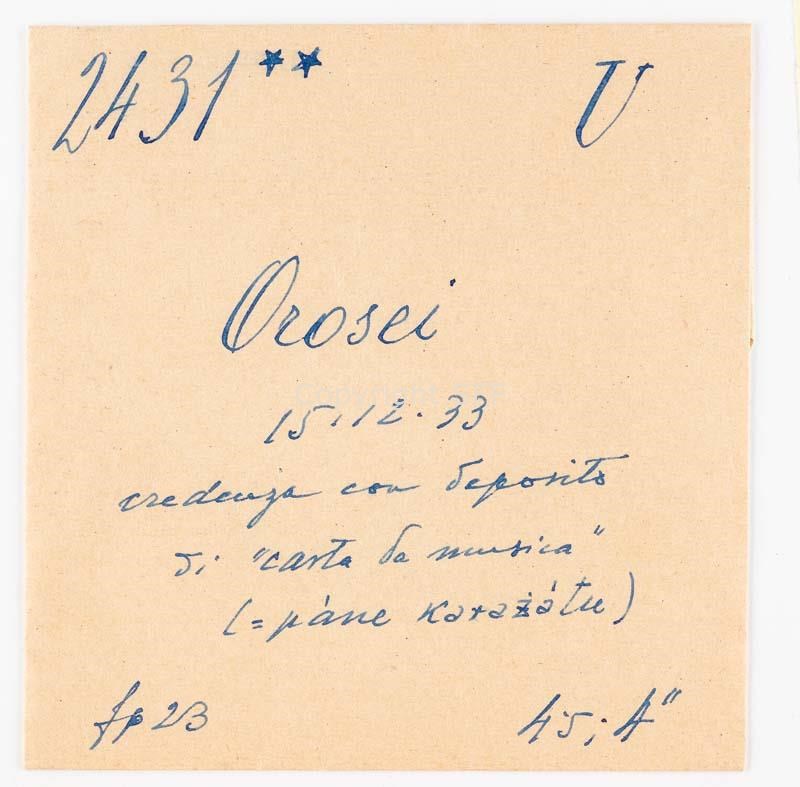 2431** U
Orosei
15.12.33
credenza con deposito
di "carta da musica"
(= páne karaẑátu)
fp 23 45; 4"